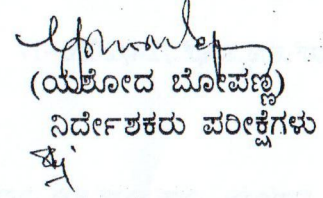 (ಯಶೋದ ಬೋಪಣ್ಣ)
ನಿರ್ದೇಶಕರು ಪರೀಕ್ಷೆಗಳು